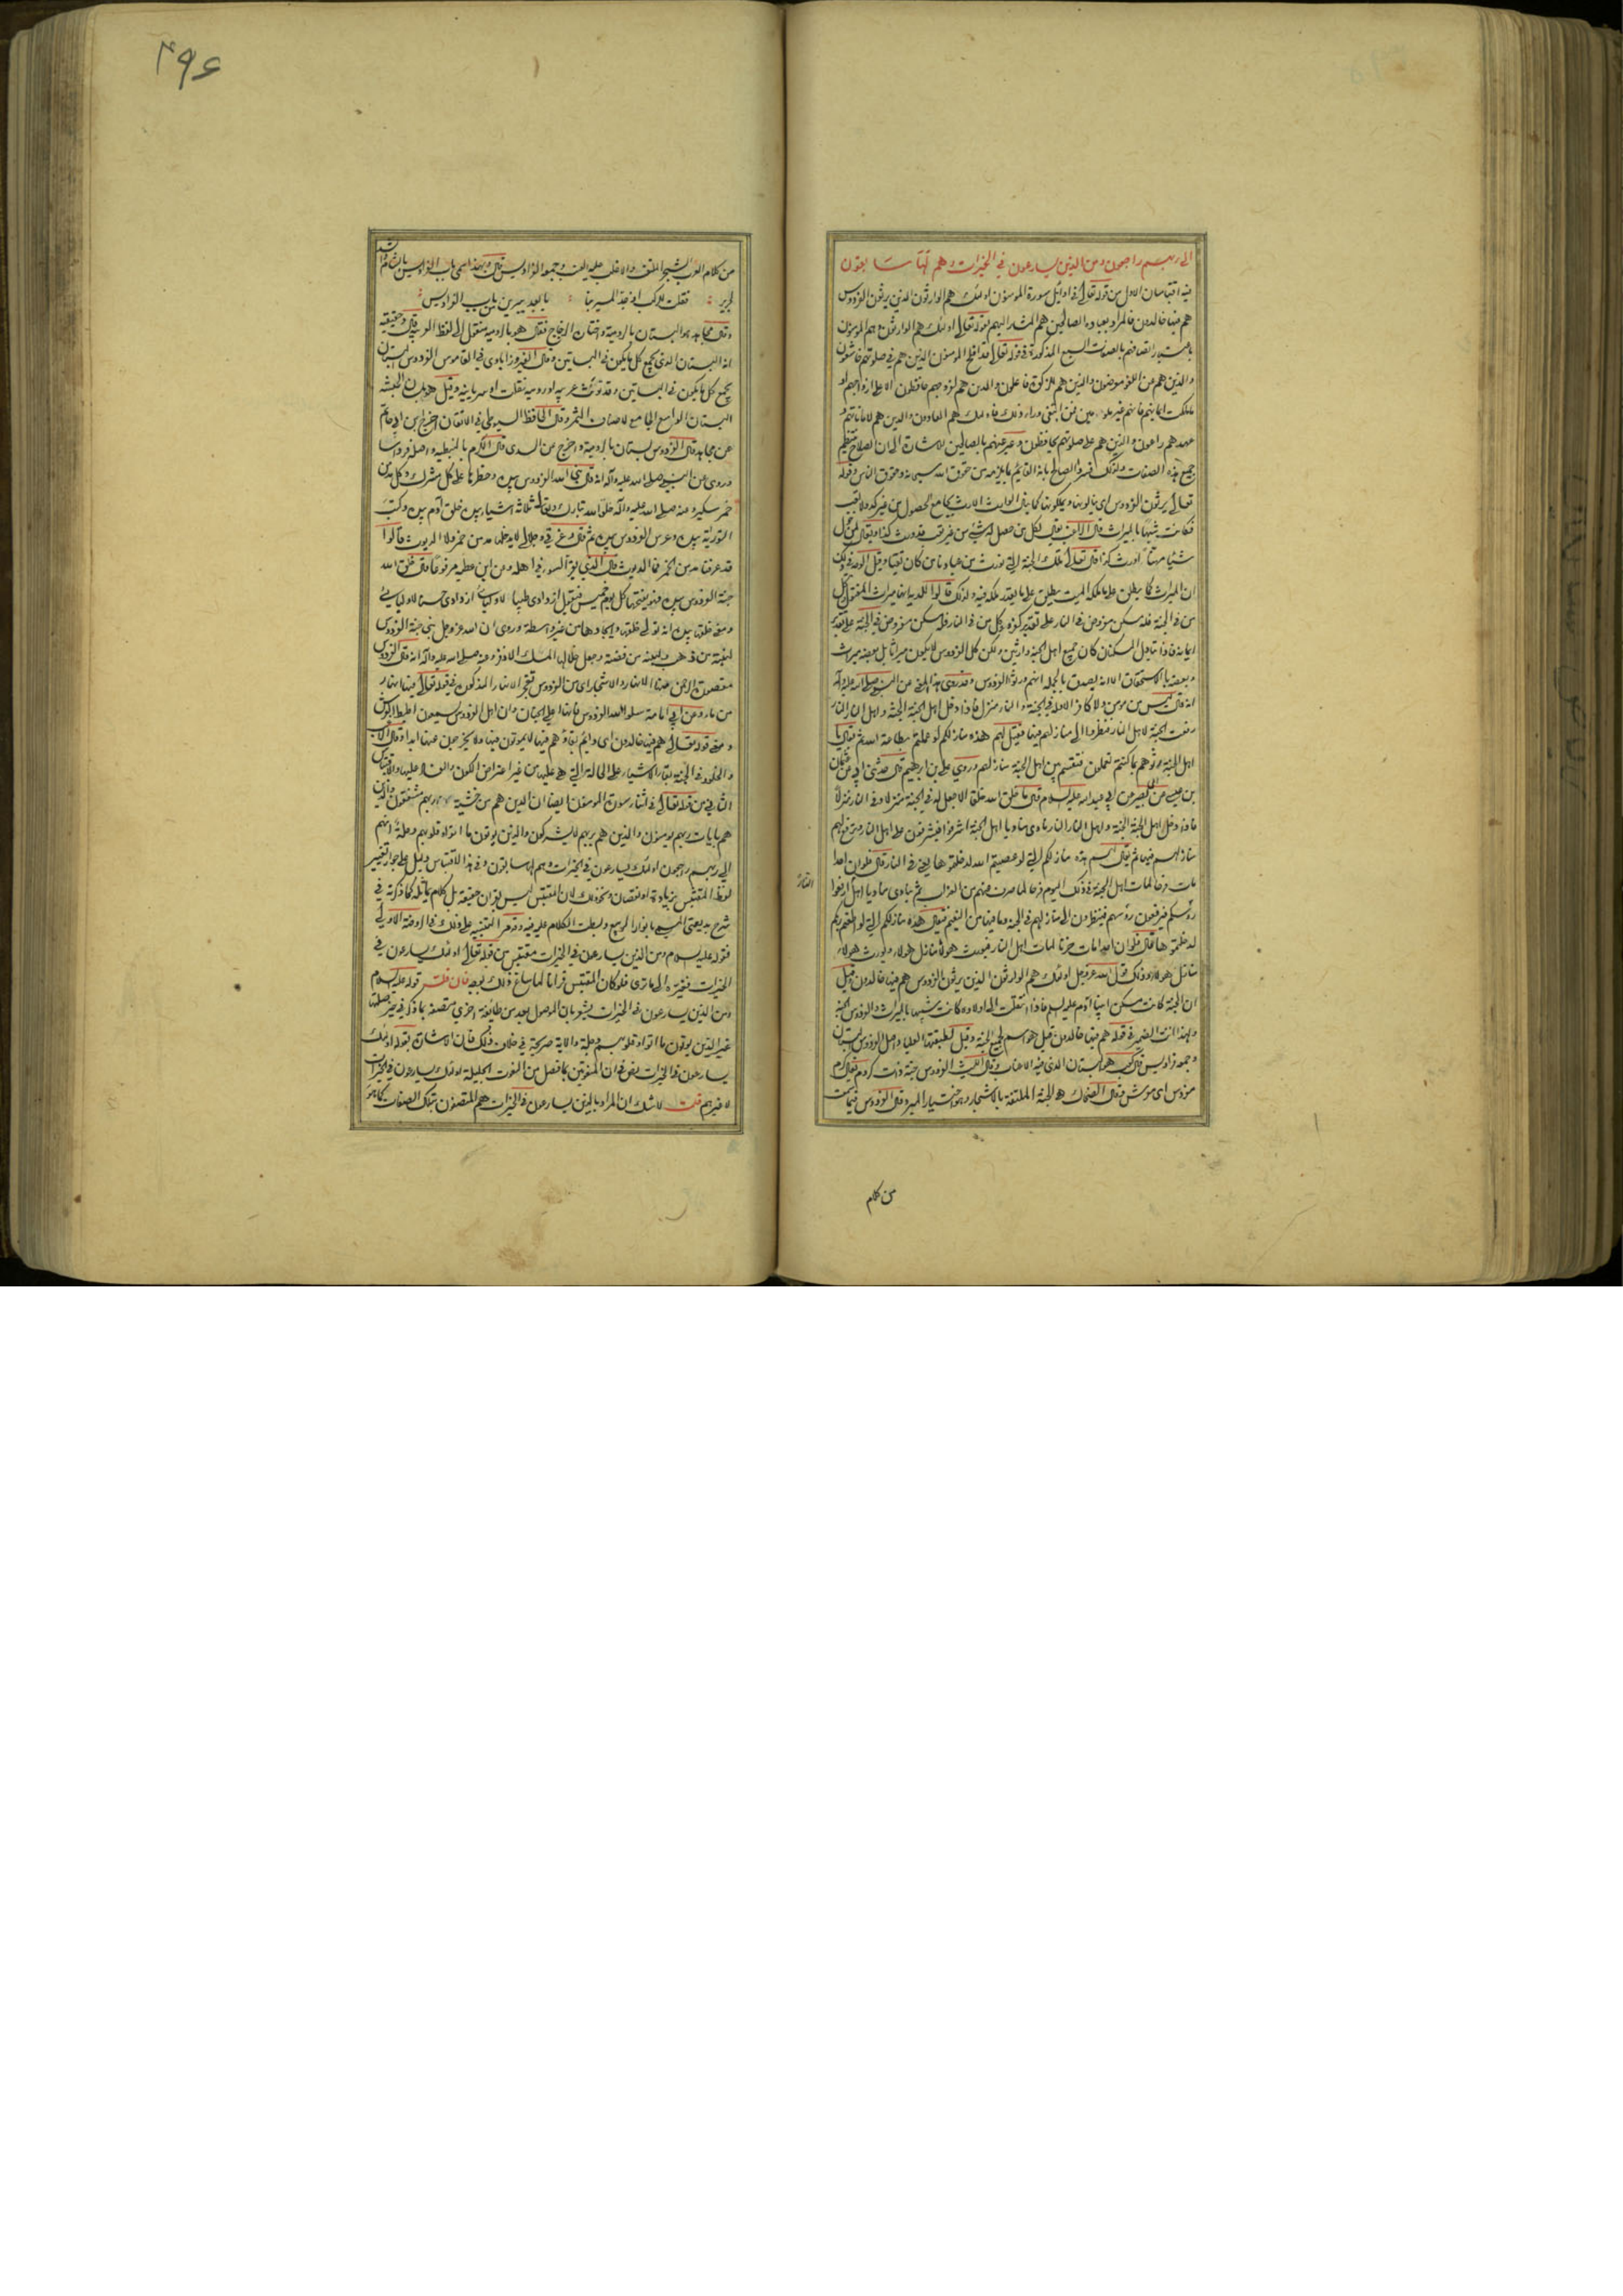 الى ربهم راجعون ومن الذين يسارعون في الخيرات وهم لها سابقون
فيه اقتباسان الاول من قوله تعالى في اوائل سورة المؤمنون اولئك هم الوارثون الذين يرثون الفردوس
هم فيها خالدون فالمراد بعباده الصالحين هم المشار اليهم بقوله تعالى اولئك هم الوارثون وهم المؤمنون
باعتبار اتصافهم بالصفات السبع المذكورة في قوله تعالى قد افلح المؤمنون الذين هم في صلوتهم خاشعون
والذين هم عن اللغو معرضون والذين هم للزكوة فاعلون والذين هم لفروجهم حافظون الا على ازواجهم او
ما ملكت ايمانهم فانهم غير ملومين فمن ابتغى وراء ذلك فاولئك هم العادون والذين هم لاماناتهم و
عهدهم راعون والذين هم على صلوتهم يحافظون وعبر عنهم بالصالحين للاشارة الى ان الصلاح ينتظم
جميع هذه الصفات ولذلك فسر الصالح بانه القائم بما يلزمه من حقوق الله سبحانه وحقوق الناس وقوله
تعالى يرثون الفردوس اى ينالونها ويملكونها كما ينال الوارث الارث بجامع الحصول من غير كد ولا تعب
فكانت شبيها بالميراث قال الراغب يقال لكل من حصل له شيء من غير تعب قد ورث كذا ويقال لمن خول
شيئا مهنئا اورث كذا قال تعالى تلك الجنة التي نورث من عبادنا من كان تقيا وقيل الوجه في ذلك
ان الميراث كما يطلق على ما ملكه الميت يطلق على ما يقدر ملكه فيه ولذلك قالوا للدية انها ميراث المقتول وكل
من في الجنة فله مسكن مفروض في النار على تقدير كفره وكل من في النار فله مسكن مفروض في الجنة على تقدير
ايمانه فاذا تبادل المسكنان كان جميع اهل الجنة وارثين ولكن كل الفردوس لا يكون ميراثا بل بعضه ميراث
وبعضه بالاستحقاق الا انه يصدق بالجملة انهم ورثوا الفردوس وقد روى هذا المعنى عن النبي صلى الله عليه وآله
انه قال ليس من مؤمن ولا كافر الا وله في الجنة والنار منزل فاذا دخل اهل الجنة الجنة واهل النار النار
رفعت الجنة لاهل النار فنظروا الى منازلهم فيها فقيل لهم هذه منازلكم لو عملتم بطاعة الله ثم يقال يا
اهل الجنة رثوهم بما كنتم تعملون فتقسم بين اهل الجنة منازلهم وروى علي بن ابرهيم قال حدثني ابي عن عثمان
بن عيسى عن ابي بصير عن ابي عبد الله عليه السلام قال ما خلق الله خلقا الا جعل له في الجنة منزلا وفي النار منزلا
فاذا دخل اهل الجنة الجنة واهل النار النار نادى مناد يا اهل الجنة اشرفوا فيشرفون على اهل النار وترفع لهم
منازلهم فيها ثم يقال لهم هذه منازلكم التي لو عصيتم الله لدخلتموها يعني في النار قال فلو ان احدا
مات فرحا لمات اهل الجنة في ذلك اليوم فرحا لما صرف عنهم من العذاب ثم ينادى مناد يا اهل النار ارفعوا
رؤسكم فيرفعون رؤسهم فينظرون الى منازلهم في الجنة وما فيها من النعيم فيقال هذه منازلكم التي لو اطعتم ربكم
لدخلتموها قال فلو ان احدا مات حزنا لمات اهل النار فيورث هؤلاء منازل هؤلاء ويورث هؤلاء
منازل هؤلاء وذلك قول الله عز وجل اولئك هم الوارثون الذين يرثون الفردوس هم فيها خالدون وقيل
ان الجنة كانت مسكن ابينا آدم عليه السلام فاذا انتقلت الى اولاده كانت شبيها بالميراث والفردوس الجنة
ولهذا انث الضمير في قوله هم فيها خالدون وقيل هو اسم لجميع الجنة وقيل لطبقتها العليا واصل الفردوس البستان
وجمعه فراديس قال كعب هو البستان الذي فيه الاعناب وقال الليث الفردوس جنة ذات كروم يقال كرم
مفردس اى معرش وقال الضحاك هو الجنة الملتفة بالاشجار وهو اختيار المبرد وقال الفردوس فيما سمعت
من كلام
۴۹۶
من كلام العرب الشجر الملتف والاغلب عليه العنب وجمعه الفراديس قال ولهذا سمى باب الفراديس بالشام وانشد
لجرير فقلت للركب اذ جد المسير بنا يا بعد يبرين من باب الفراديس
وقال مجاهد هو البستان بالرومية واختاره الزجاج فقال هو بالرومية منقول الى لفظ العربية قال وحقيقته
انه البستان الذي يجمع كل ما يكون في البساتين وقال الفيروزابادي في القاموس الفردوس البستان
يجمع كل ما يكون في البساتين وقد تؤنث عربية او رومية نقلت او سريانية وقيل هو بلسان الحبشة
البستان الواسع الجامع لاصناف الثمر وقال الحافظ السيوطي في الاتقان اخرج ابن ابي حاتم
عن مجاهد قال الفردوس بستان بالرومية واخرج عن السدي قال الكرم بالنبطية واصله فرداسا
وروى عن النبي صلى الله عليه وآله انه قال بنى الله الفردوس بيده وحظرها على كل مشرك وكل مدمن
خمر سكير وعنه صلى الله عليه وآله خلق الله تبارك وتعالى ثلاثة اشياء بيده خلق آدم بيده وكتب
التورية بيده وغرس الفردوس بيده ثم قال وعزتي وجلالي لا يدخلها مدمن خمر ولا الديوث قالوا
قد عرفنا مدمن الخمر فما الديوث قال الذي يقر السوء في اهله وعن ابن عطية مرفوعا قال خلق الله
جنة الفردوس بيده فهو يفتحها كل يوم خميس فيقول ازدادي طيبا لاوليائي ازدادي حسنا لاوليائي
ومعنى خلقها بيده انه تولى خلقها وايجادها من غير واسطة وروى ان الله عز وجل بنى جنة الفردوس
لبنة من ذهب ولبنة من فضة وجعل خلالها المسك الاذفر وعنه صلى الله عليه وآله انه قال الفردوس
مقصورة الرحمن فيها الانهار والاشجار اى من الفردوس تفجر الانهار المذكورة في قوله تعالى فيها انهار
من ماء وعن ابي امامة سلوا الله الفردوس فانها اعلى الجنان وان اهل الفردوس يسمعون اطيط العرش
ومعنى قوله تعالى هم فيها خالدون اى دائم بقاؤهم فيها لا يموتون فيها ولا يخرجون عنها ابدا وقال الراغب
والخلود في الجنة بقاء الاشياء على الحالة التي هي عليها من غير اعتراض الكون والفساد عليها والاقتباس
الثاني من قوله تعالى في اثناء سورة المؤمنون ايضا ان الذين هم من خشية ربهم مشفقون والذين
هم بايات ربهم يؤمنون والذين هم بربهم لا يشركون والذين يؤتون ما اتوا وقلوبهم وجلة انهم
الى ربهم راجعون اولئك يسارعون في الخيرات وهم لها سابقون وفي هذا الاقتباس دليل على جواز تغيير
لفظ المقتبس بزيادة او نقصان ونحو ذلك لان المقتبس ليس بقران حقيقة بل كلام يماثله كما ذكرته في
شرح بديعيتي المسمى بانوار الربيع وبسطت الكلام عليه فيه وقد مر التنبيه على ذلك في الروضة الاولى
فقوله عليه السلام ومن الذين يسارعون في الخيرات مقتبس من قوله تعالى اولئك يسارعون في
الخيرات فغيره الى ما ترى فلو كان المقتبس قرانا لما ساغ ذلك بوجه فان قلت قوله عليه السلام
ومن الذين يسارعون في الخيرات يشعر بان الموصول بعد من طايفة اخرى متصفة بما ذكر في حيز صلتها
غير الذين يؤتون ما اتوا وقلوبهم وجلة والاية صريحة في خلاف ذلك فان الاشارة بقوله اولئك
يسارعون في الخيرات نص في ان المنعوتين بما فصل من النعوت الجليلة اولئك يسارعون في الخيرات
لا غيرهم قلت لا شك ان المراد بالذين يسارعون في الخيرات هم المتصفون بتلك الصفات كما هو